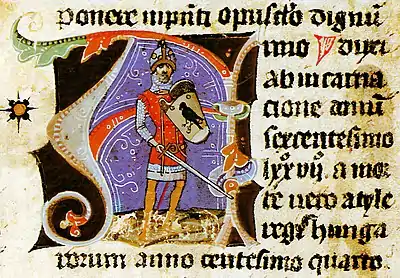 ponere in pn̄ti opusc̄lo dignū
imo P dixi
ab incarna
cione anni
sexcentesimo
lxx vij. a mor
te vero atyle
regis hunga
rorum anno centesimo quarto